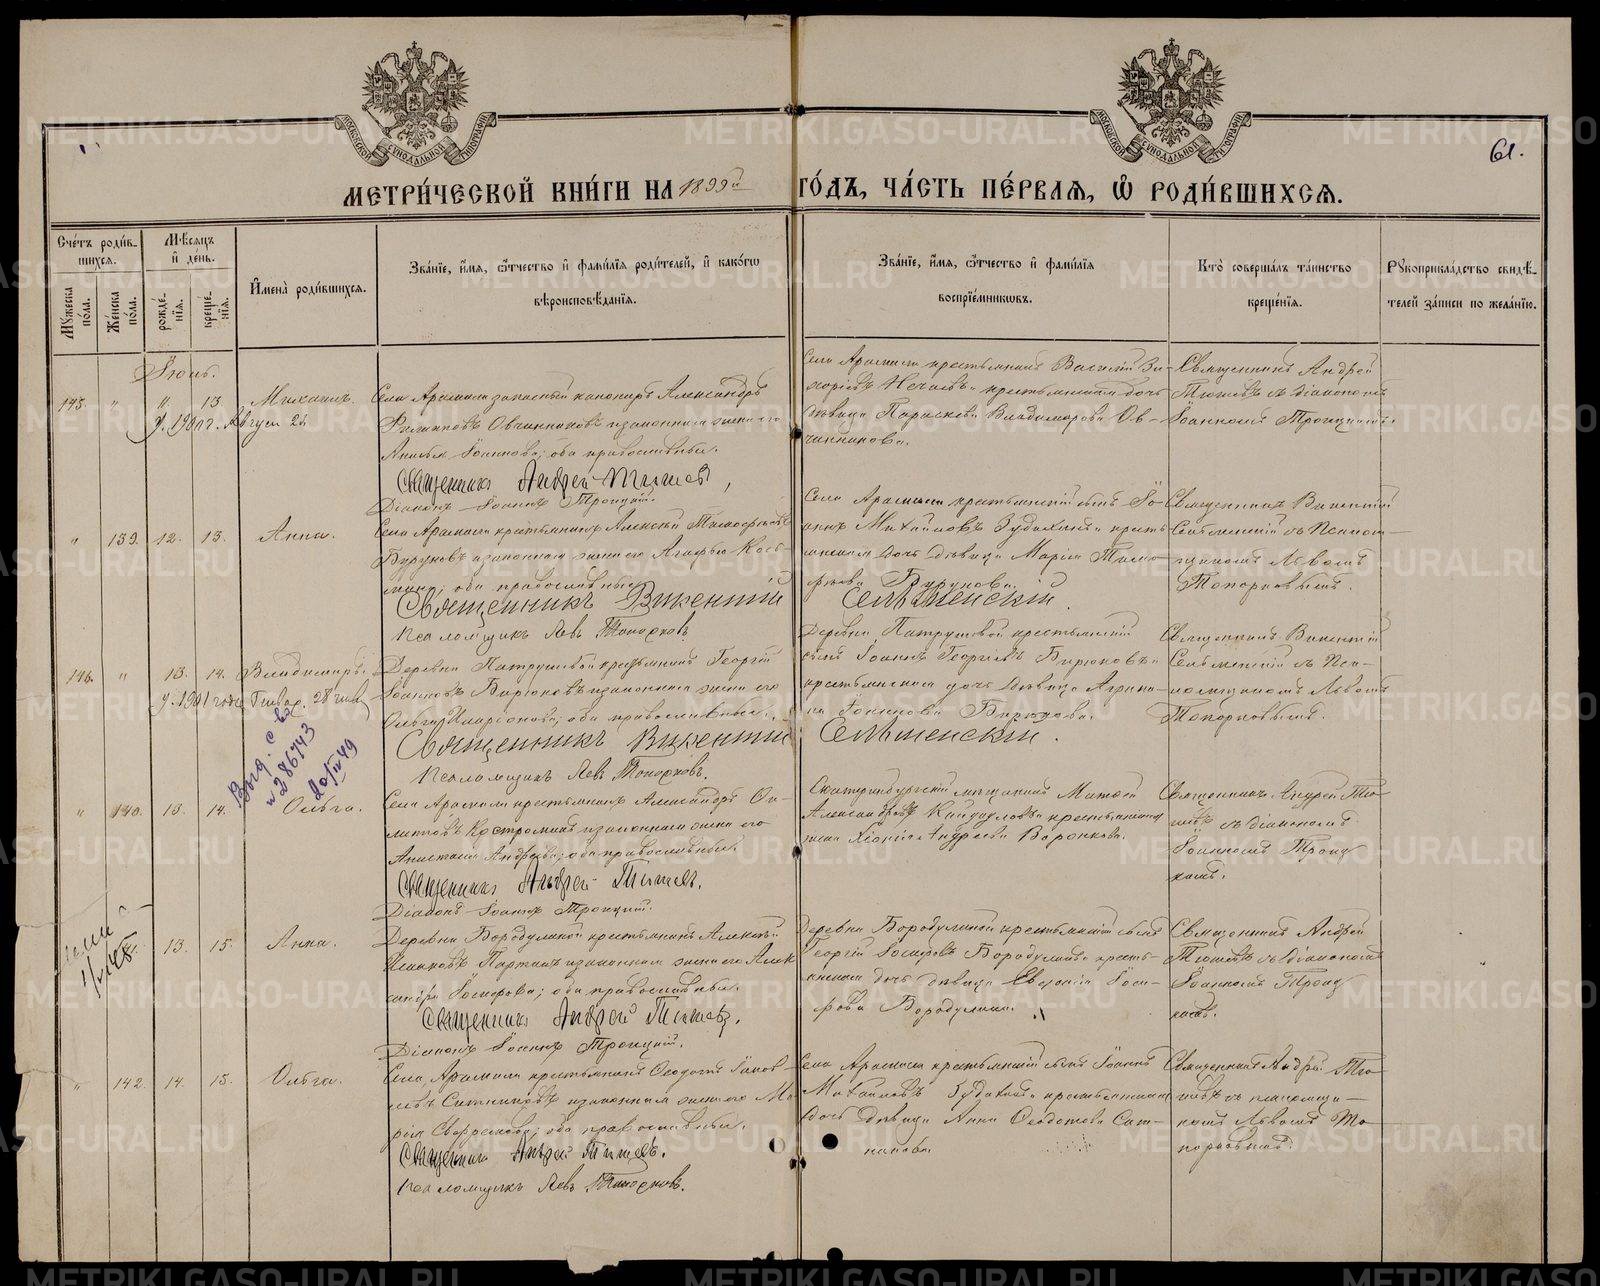 МОСКОВСКОЙ СУНОДАЛЬНОЙ ТИПОГРАФІИ
МОСКОВСКОЙ СУНОДАЛЬНОЙ ТИПОГРАФІИ
61.
МЕТРИ́ЧЕСКОЙ КНИ́ГИ НА 1899й ГО́ДЪ, ЧА́СТЬ ПЕ́РВАѦ, Ѡ҆ РОДИ́ВШИХСѦ.
Сче́тъ роди́в-
шихся.
Мꙋ́жеска по́ла.
Же́нска по́ла.
Мѣ́сяцъ
и҆ де́нь.
рожде́-
нїя.
креще́-
нїя.
И҆мена̀ роди́вшихся.
Зва́нїе, и҆́мя, ѻ҆́тчество и҆ фами́лїя роди́телей, и҆ како́гѡ
вѣроисповѣ́данїя.
Зва́нїе, и҆́мя, ѻ҆́тчество и҆ фами́лїя
воспрїе́мниковъ.
Кто̀ соверша́лъ та́инство
креще́нїя.
Рꙋкоприкла́дство свидѣ́-
телей за́писи по жела́нїю.
Іюнь.
145. " 11 13 Михаилъ.
У. 1901 г. Август 21
Села Арамили запасный канониръ Александръ
Филиповъ Овчинниковъ и законная жена его
Іоаннова; оба православные.
Священникъ Андрей Тюшевъ,
Діаконъ Іоаннъ Троицкій.
Села Арамили крестьянинъ Василій
Нечаевъ и крестьянская дочь
дѣвица Параскева Владимірова Ов-
чинникова.
Священникъ Андрей
Тюшевъ съ діакономъ
Іоанномъ Троицкимъ.
" 139. 12. 13. Анна.
Села Арамили крестьянинъ Алексѣй Тимофѣевъ
Буруховъ и законная жена его Агафья Кось-
мина; оба православные.
Священникъ Викентій Сельменскій.
Псаломщикъ Левъ Топорковъ
Села Арамили крестьянскій сынъ Іо-
аннъ Михайловъ и кресть-
янская дочь дѣвица Марія Тимо-
фѣева
Священникъ Викентій
Сельменскій съ Псалом-
щикомъ Львомъ
Топорковымъ.
146. " 13. 14. Владиміръ.
У. 1901 года Январ. 28 числа
Деревни Патрушевой крестьянинъ Георгій
Іоанновъ Бирюковъ и законная жена его
Ольга Иларіонова; оба православные.
Священникъ Викентій Сельменскій.
Псаломщикъ Левъ Топорковъ.
Деревни Патрушевой крестьянскій
сынъ Іоаннъ Георгіевъ Бирюковъ и
крестьянская дочь дѣвица Агрипи-
на Іоаннова Бирюкова.
Священникъ Викентій
Сельменскій съ Пса-
ломщикомъ Львомъ
Топорковымъ.
Выд. с-во
№ 286743
20/IV 49
" 140. 13. 14. Ольга.
Села Арамили крестьянинъ Александръ
Костроминъ и законная жена его
Анастасія Андреева; оба православные.
Священникъ Андрей Тюшевъ.
Діаконъ Іоаннъ Троицкій.
Екатеринбургскій мѣщанинъ Матвѣй
Александровъ и крестьянская
жена Хіонія Андреева Воронкова.
Священникъ Андрей Тю-
шевъ съ діакономъ
Іоанномъ Троиц-
кимъ.
141. 13. 15. Анна.
Деревни Бородулиной крестьянинъ Алексѣй
Партинъ и законная жена его Алек-
сандра Іосифова; оба православные.
Священникъ Андрей Тюшевъ.
Діаконъ Іоаннъ Троицкій.
Деревни Бородулиной крестьянскій сынъ
Георгій Іосифовъ Бородулинъ и кресть-
янская дочь дѣвица Евгенія Іоси-
фова Бородулина.
Священникъ Андрей
Тюшевъ съ діакономъ
Іоанномъ Троиц-
кимъ.
" 142. 14. 15. Ольга.
Села Арамили крестьянинъ Ѳеодотъ Іаков-
левъ Ситниковъ и законная жена его Ма-
рія; оба православные.
Священникъ Андрей Тюшевъ.
Псаломщикъ Левъ Топорковъ.
Села Арамили крестьянскій сынъ Іоаннъ
Михайловъ и крестьянская
дочь дѣвица Анна Ѳеодотова Сит-
никова.
Священникъ Андрей Тю-
шевъ съ псаломщи-
комъ Львомъ То-
порковымъ.
METRIKI.GASO-URAL.RU